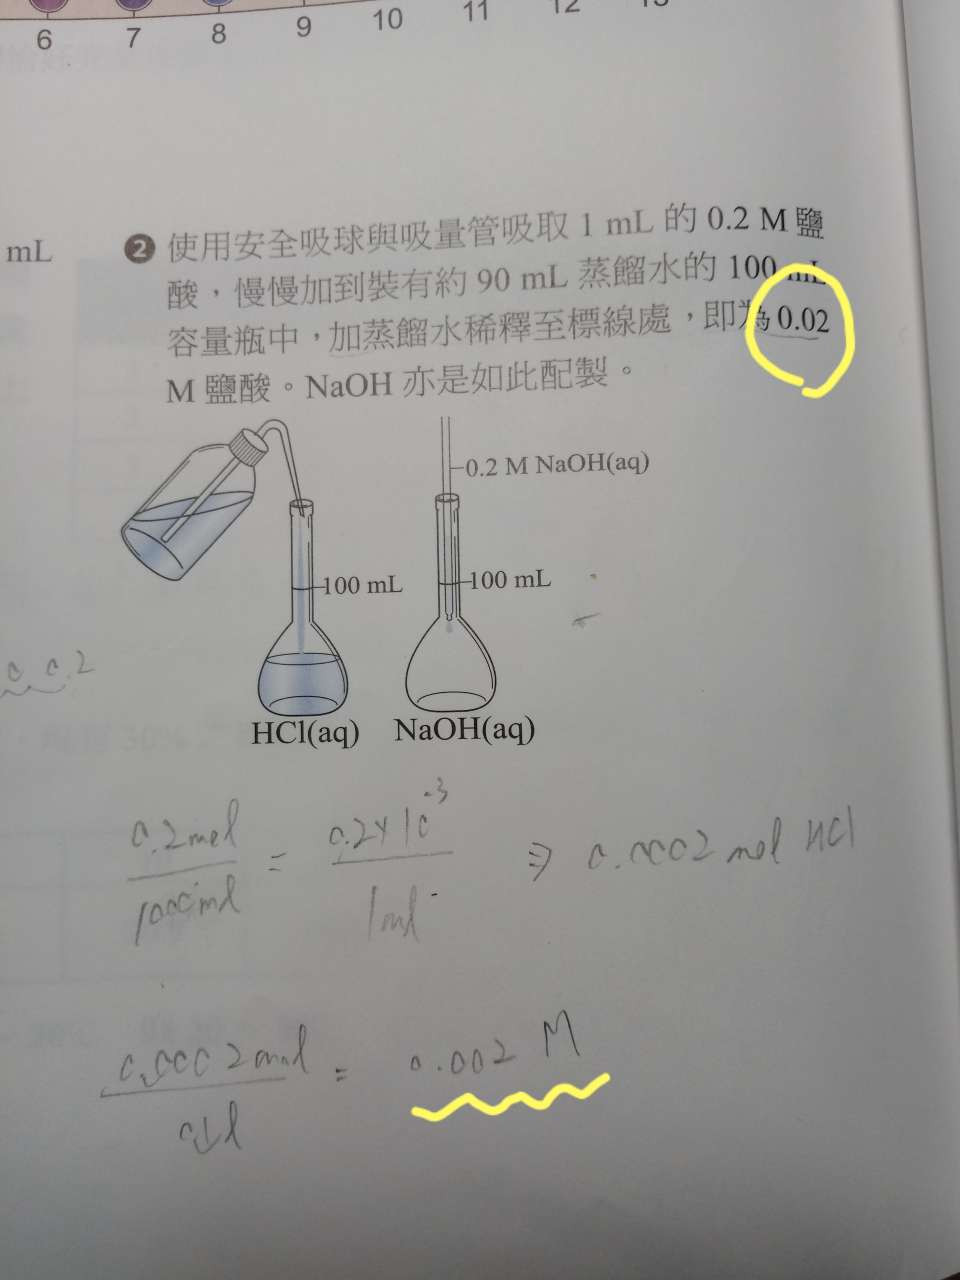 6 7 8 9 10 11 12 13
mL
❷ 使用安全吸球與吸量管吸取 1 mL 的 0.2 M 鹽
酸，慢慢加到裝有約 90 mL 蒸餾水的 100 mL
容量瓶中，加蒸餾水稀釋至標線處，即為 0.02
M 鹽酸。NaOH 亦是如此配製。
0.2 M NaOH(aq)
100 mL
100 mL
HCl(aq)
NaOH(aq)
0.2mol / 1000ml = 0.2×10⁻³ / 1ml ⇒ 0.0002 mol HCl
0.0002mol / 0.1l = 0.002 M